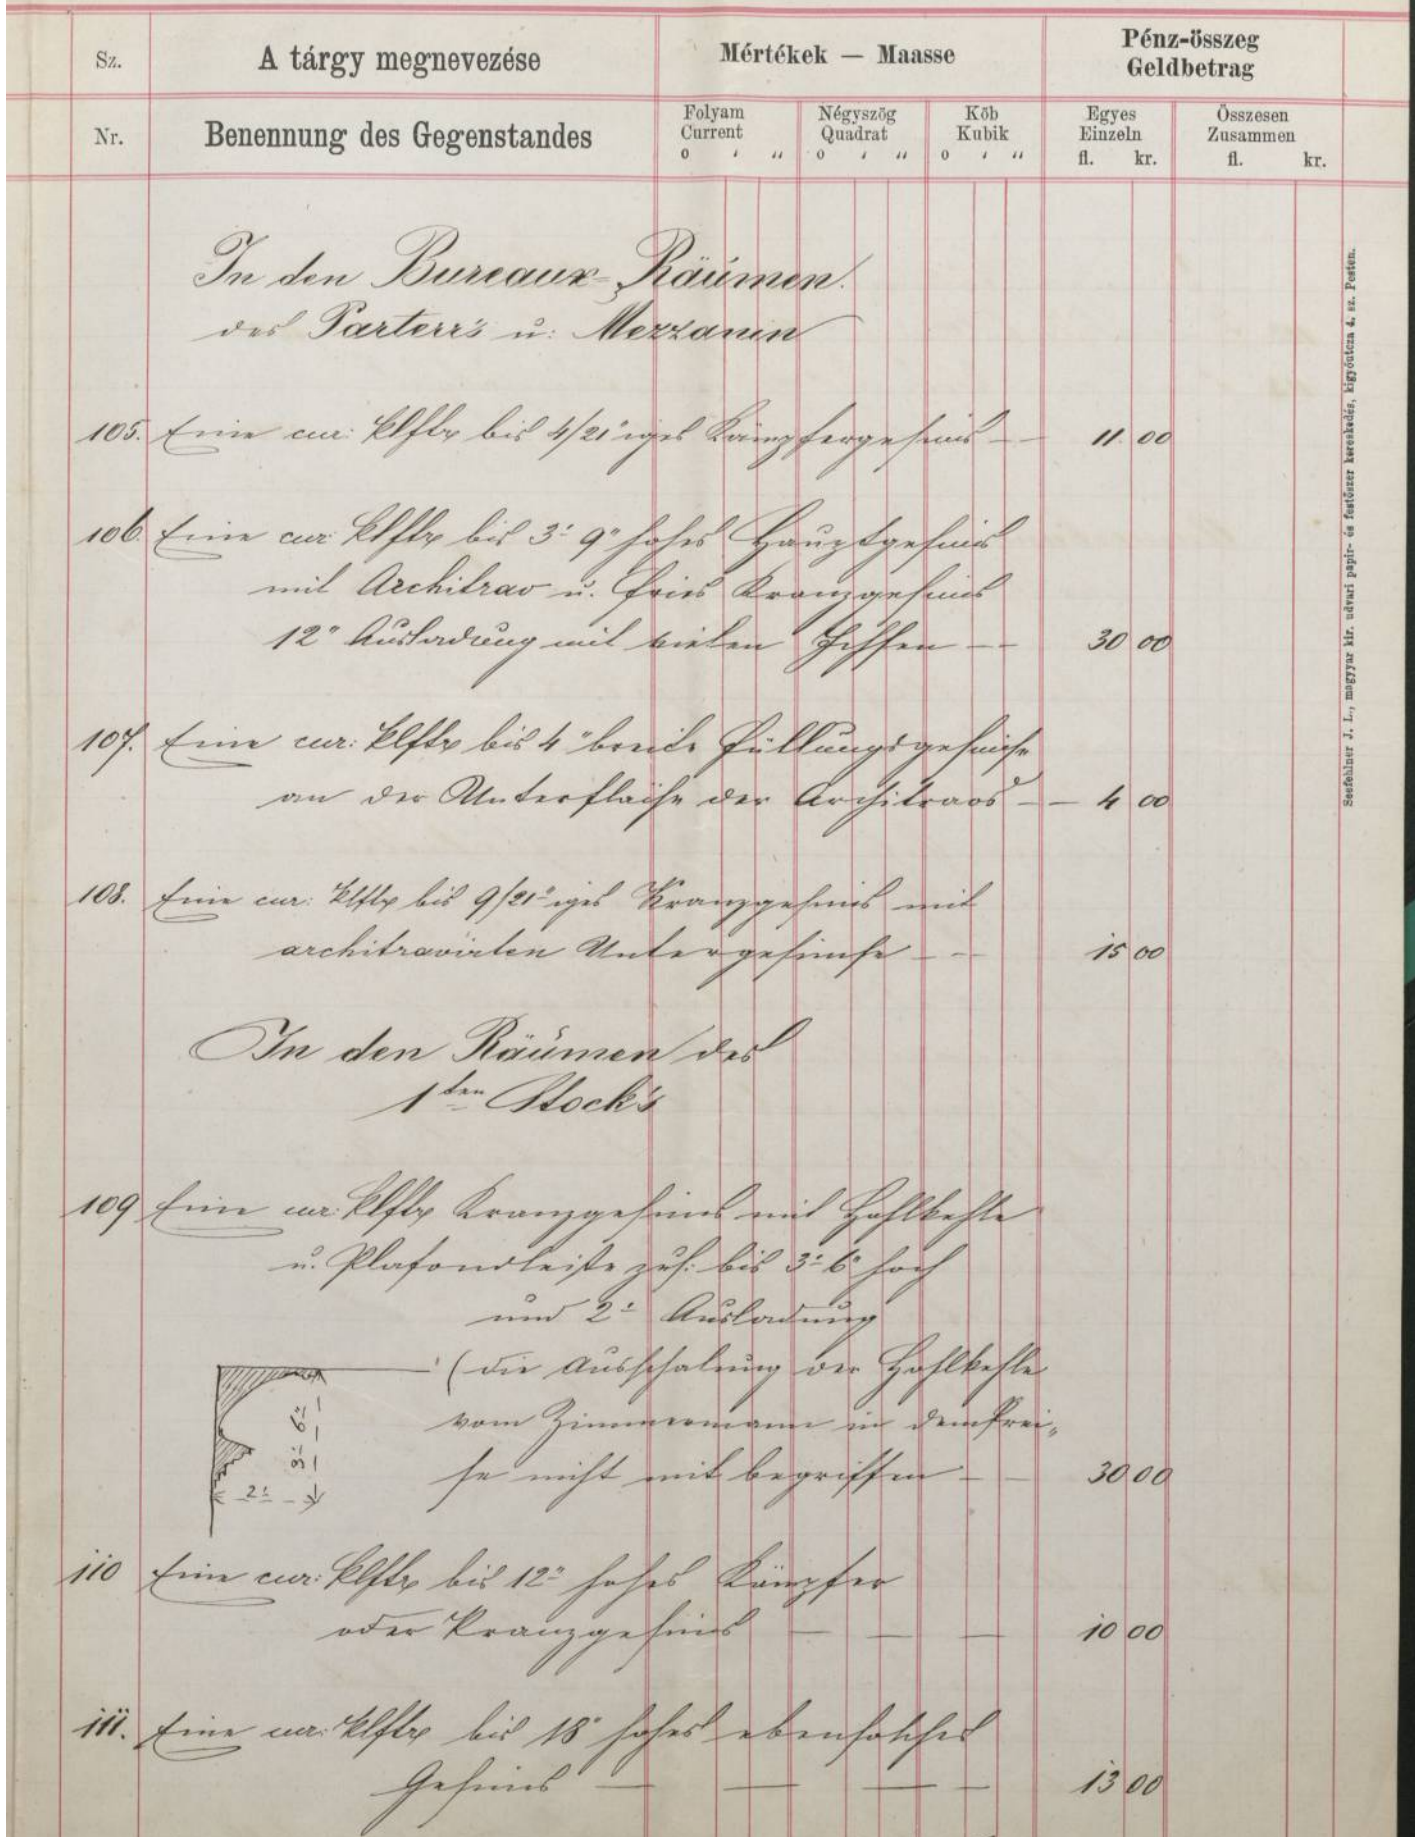 Sz.
A tárgy megnevezése
Mértékek — Maasse
Pénz-összeg
Geldbetrag
Nr.
Benennung des Gegenstandes
Folyam
Current
0 ‚ „
Négyszög
Quadrat
0 ‚ „
Köb
Kubik
0 ‚ „
Egyes
Einzeln
fl. kr.
Összesen
Zusammen
fl. kr.
In den Bureaux-Räumen.
des Parterr's u: Mezzanin
105. Eine cur: Klftr bis 4/21" iges Kämpfergesims — — 11 00
106. Eine cur Klftr bis 3' 9" hohes Hauptgesims
mit Architrav u. Fries Kranzgesims
12" Ausladung mit vielen — — 30 00
107. Eine cur: Klftr bis 4" breite Füllungsgesimse
an der Unterfläche der Architravs — — 4 00
108. Eine cur: Klftr bis 9/21" iges Kranzgesims mit
architravirten Untergesimse — — 15 00
In den Räumen des
1ten Stock's
109 Eine cur: Klftr Kranzgesims mit Hohlkehle
u. Plafondleiste zus: bis 3' 6" hoch
und 2' Ausladung
(die Ausschalung der Hohlkehle
vom Zimmermann in dem Prei-
se nicht mit begriffen — — 30 00
2'
110 Eine cur: Klftr bis 12" hohes Kämpfer
oder Kranzgesims — — — 10 00
111. Eine cur: Klftr bis 18" hohes ebensolches
Gesims — — — — 13 00
Seefehlner J. L., magyar kir. udvari papir- és festőszer kereskedés, kigyóutcza 4. sz. Pesten.